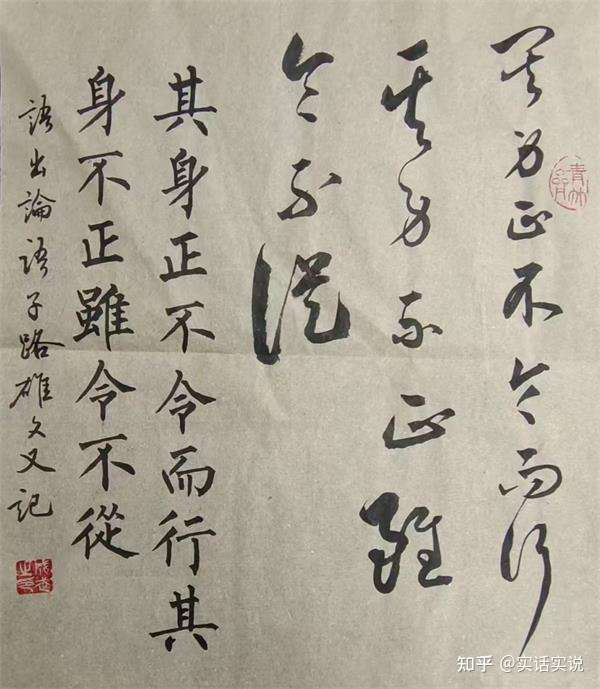 其身正不令而行
其身不正雖
令不從
其身正不令而行其
身不正雖令不從
語出論語子路雄文又記
知乎 @实话实说